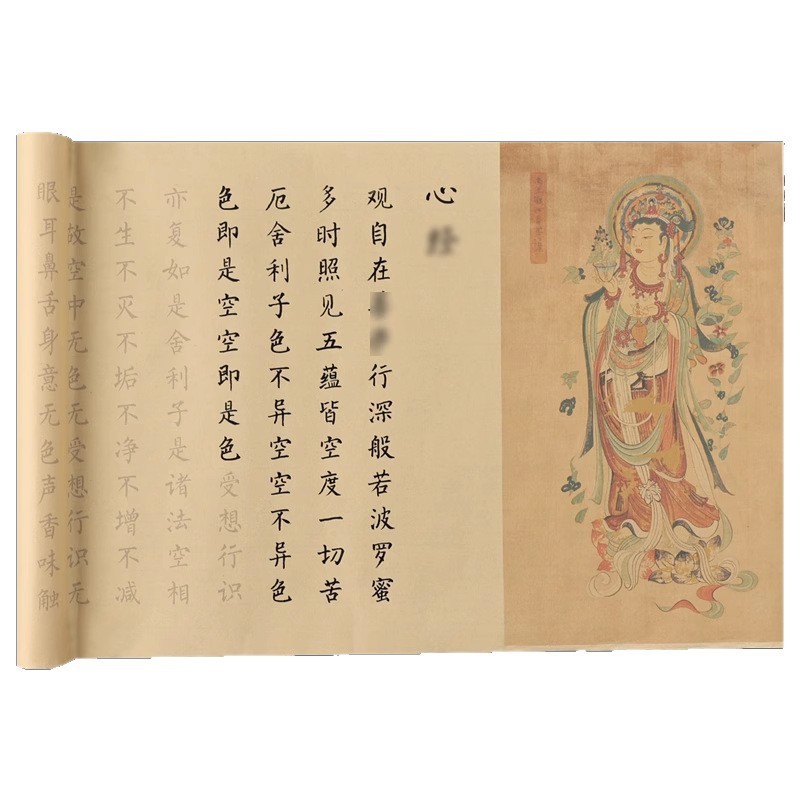 心
观自在行深般若波罗蜜
多时照见五蕴皆空度一切苦
厄舍利子色不异空空不异色
色即是空空即是色受想行识
亦复如是舍利子是诸法空相
不生不灭不垢不净不增不减
是故空中无色无受想行识无
眼耳鼻舌身意无色声香味触